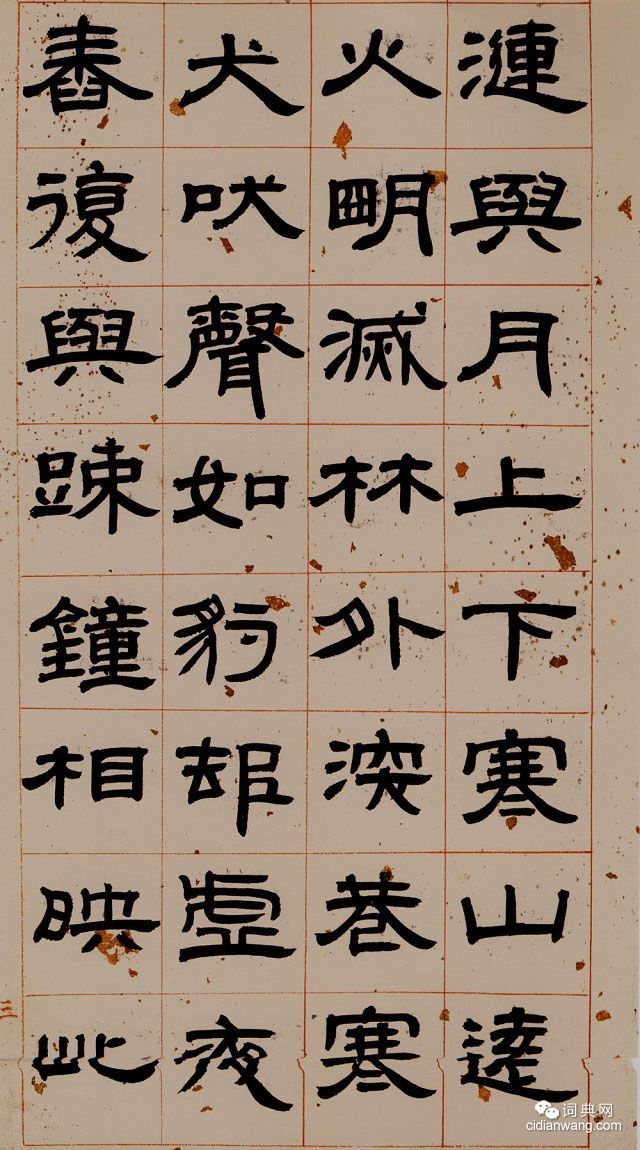 漣與月上下寒山遠
火明滅林外深巷寒
犬吠聲如豹却虛夜
舂復與踈鐘相映此
词典网
cidianwang.com